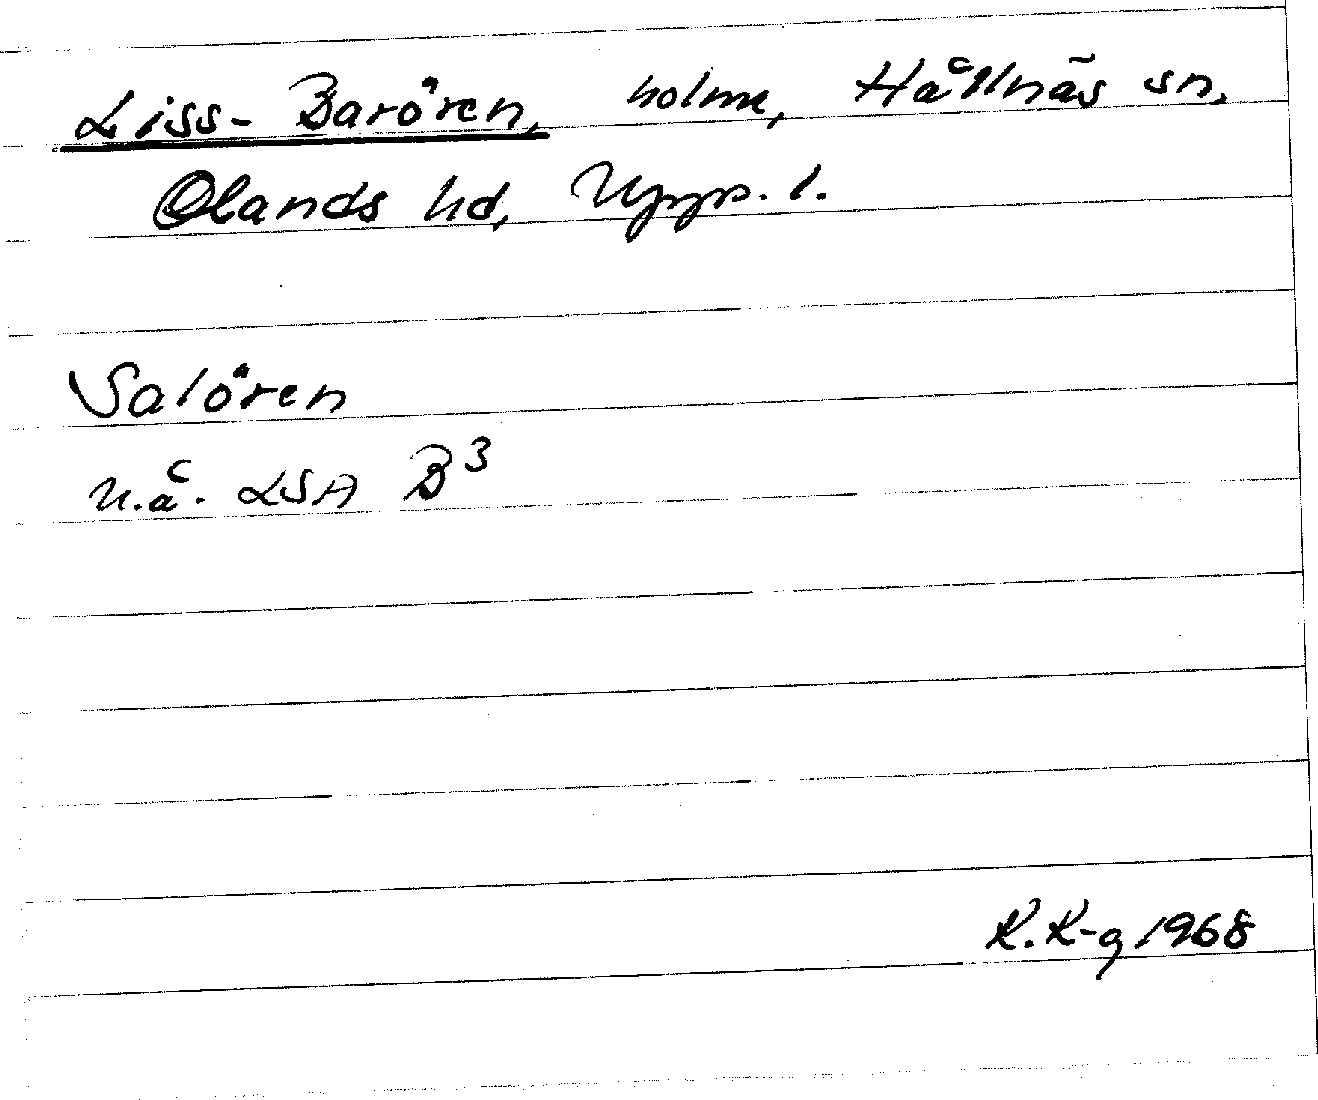 Liss-Barören, holme, Hållnäs sn,
Olands hd, Upps. l.
Salören
u.å. LSA B³
R.R-g 1968